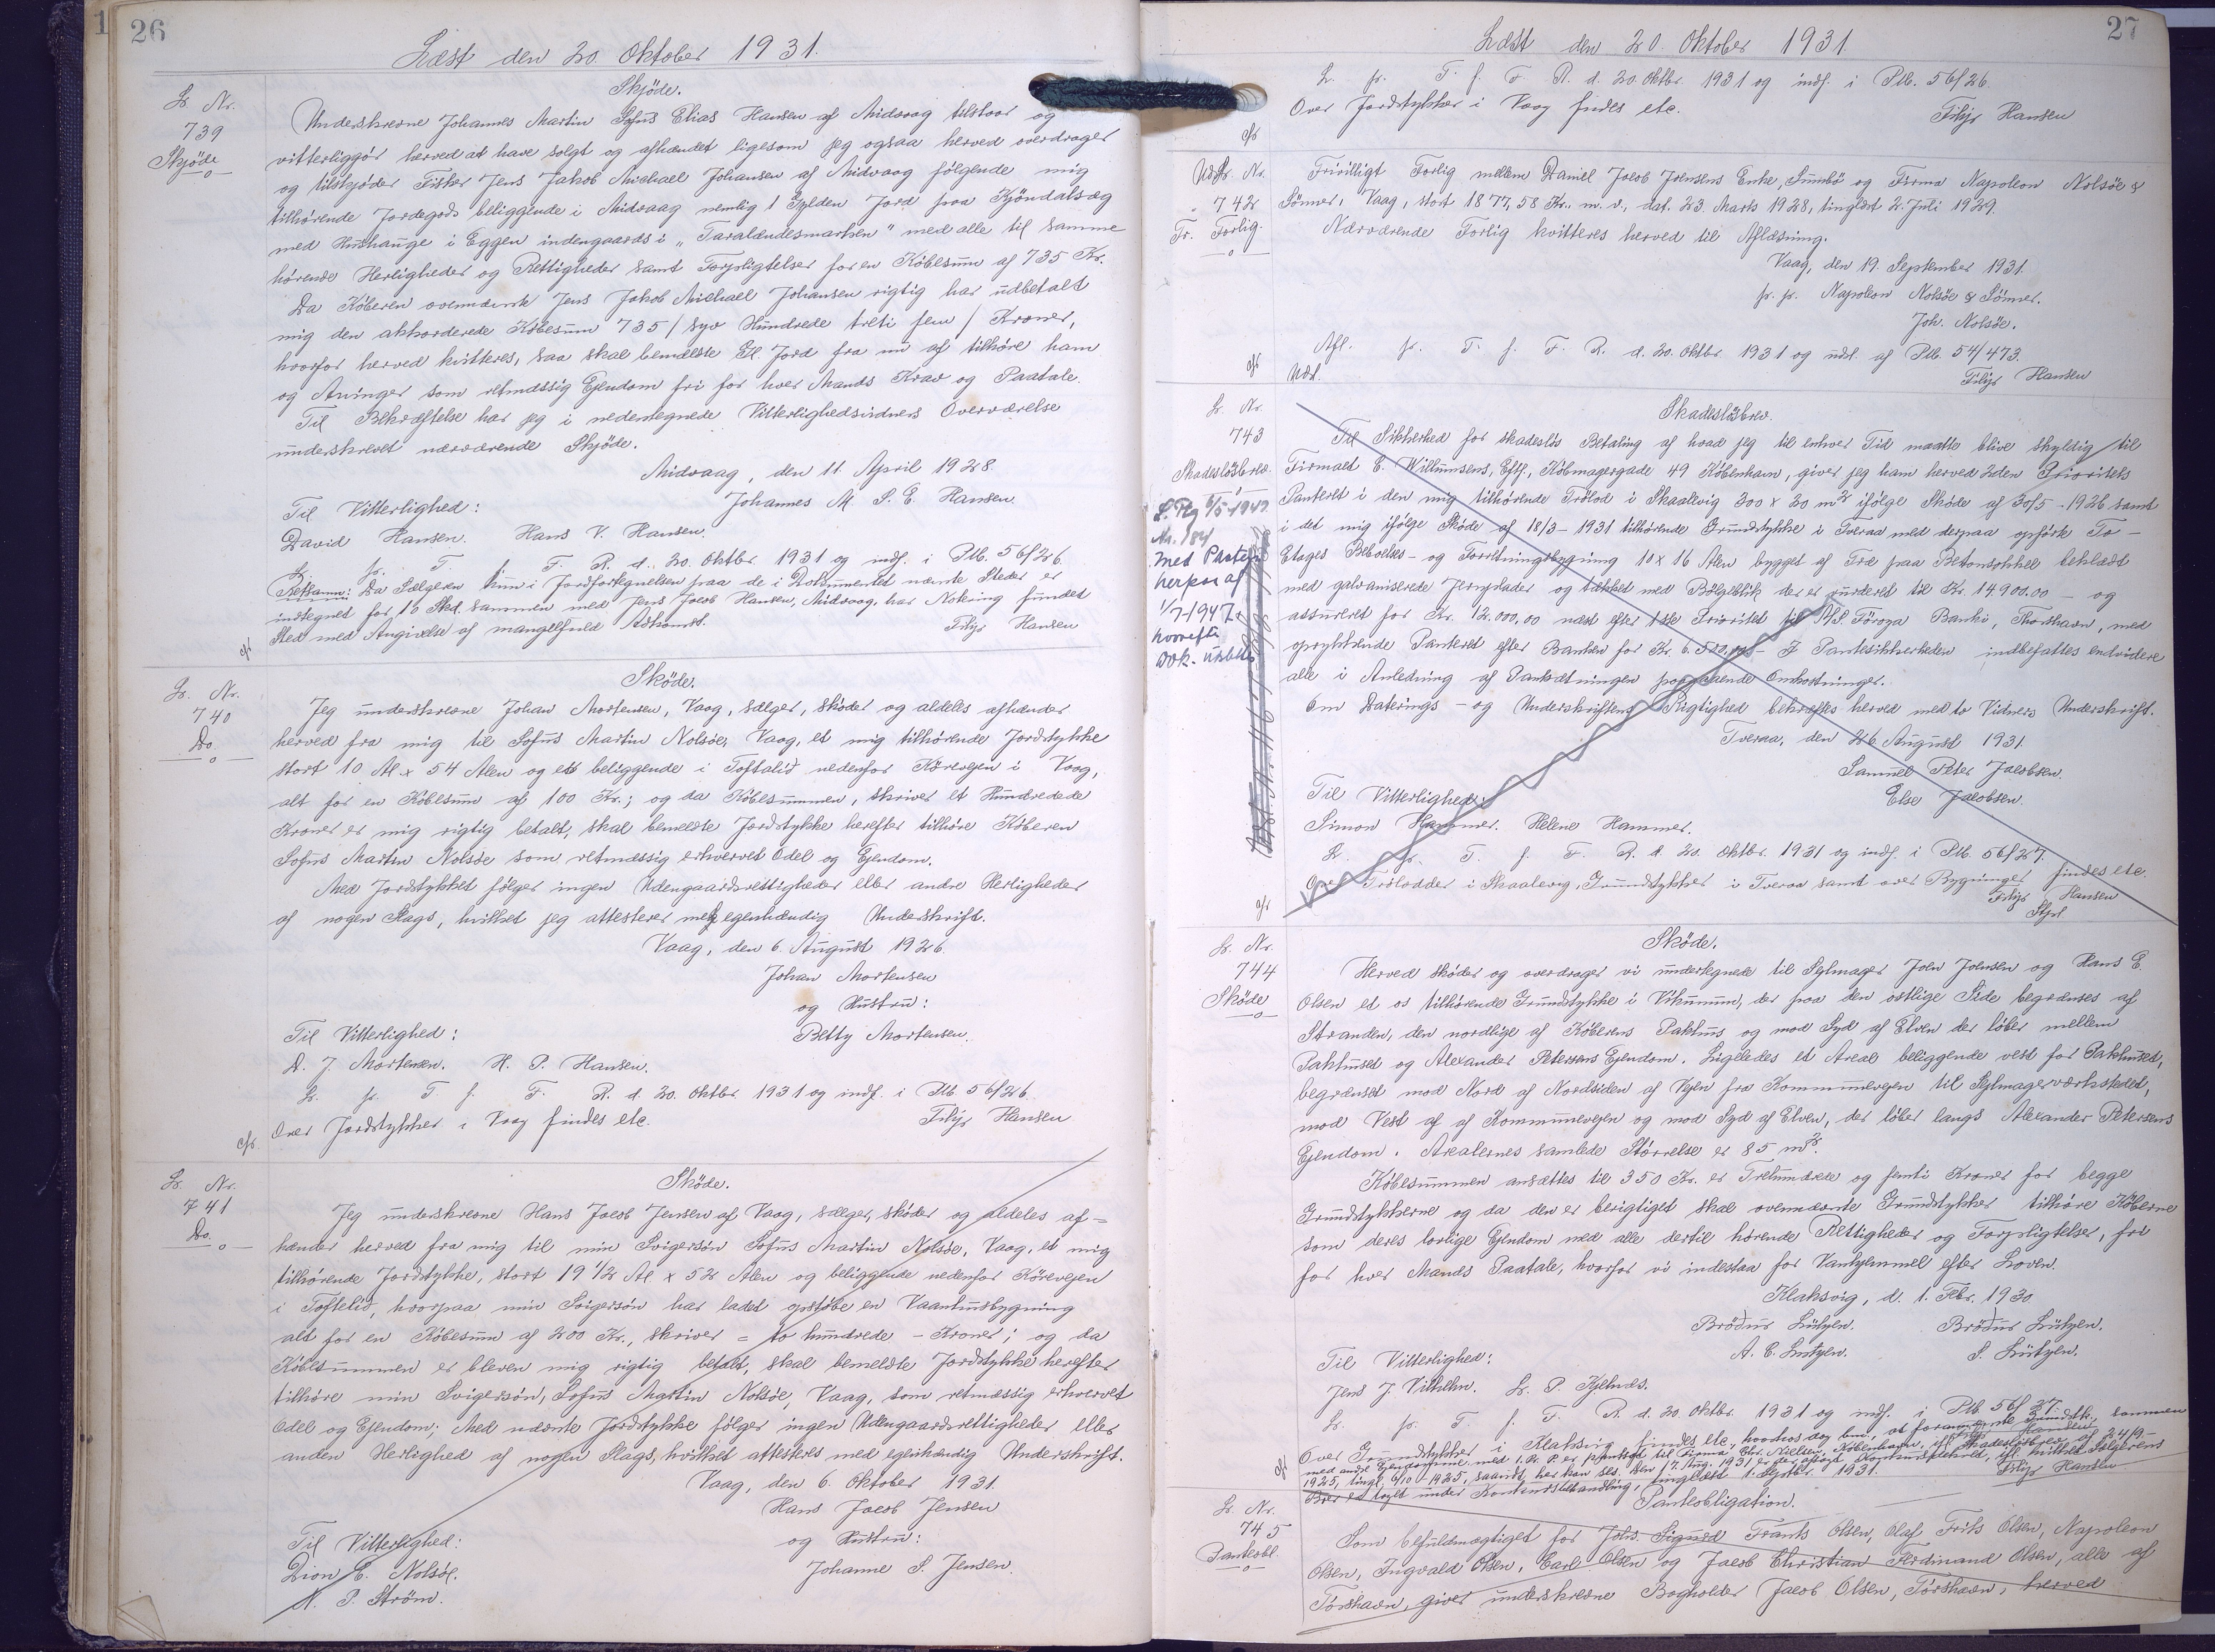 26
Læst den 20. Oktober 1931.
L. Nr.
739
Skjöde
Skjöde.
Underskrevne Johannes Martin Sofus Elias Hansen af Midvaag tilstaar og
vitterliggör herved at have solgt og afhændet ligesom jeg ogsaa herved overdrager
og tilskjöder Fisker Jens Jakob Michael Johansen af Midvaag fölgende mig
tilhörende Jordegods beliggende i Midvaag nemlig 1 Gylden Jord paa Kjöndalsæg
med Hushauge i Eggen indengaards i "Taralændesmarken" med alle til samme
hörende Herligheder og Rettigheder samt Forpligtelser for en Köbesum af 735 Kr.
Da Köberen ovennævnte Jens Jakob Michael Johansen rigtig har udbetalt
mig den akkorderede Köbesum 735 / Syv Hundrede treti fem / Kroner,
hvorfor herved kvitteres, saa skal bemeldte Gl. Jord fra nu af tilhöre ham
og Arvinger som retmæssig Ejendom fri for hver Mands Krav og Paatale.
Til Bekræftelse har jeg i nedentegnede Vitterlighedsvidners Overværelse
underskrevet nærværende Skjöde.
Midvaag, den 11. April 1928.
Johannes M. S. E. Hansen.
Til Vitterlighed:
David Hansen. Hans V. Hansen.
L. pr. T. f. F. R. d. 20. Oktbr. 1931 og indf. i Ptb. 56/26.
Retsanm: Da Sælgeren kun i Jordfortegnelsen paa de i Dokumentet nævnte Steder er
indtegnet for 16 Skd. sammen med Jens Jacob Hansen, Midvaag, har Notering fundet
Sted med Angivelse af mangelfuld Adkomst.
Filip Hansen
cfr
L. Nr.
740
Do
Sköde.
Jeg underskrevne Johan Mortensen, Vaag, sælger, sköder og aldeles afhænder
herved fra mig til Sofus Martin Nolsöe, Vaag, et mig tilhörende Jordstykke
stort 10 Al. x 54 Alen og beliggende i Toftalid nedenfor Körevejen i Vaag,
alt for en Köbesum af 100 Kr.; og da Köbesummen, skriver et Hundredede
Kroner er mig rigtig betalt, skal bemeldte Jordstykke herefter tilhöre Köberen
Sofus Martin Nolsöe som retmæssig erhvervet Odel og Ejendom.
Med Jordstykket fölger ingen Udengaardsrettigheder eller andre Herligheder
af nogen Slags, hvilket jeg attesterer med egenhændig Underskrift.
Vaag, den 6. August 1926.
Johan Mortensen
og Hustru:
Betty Mortensen.
Til Vitterlighed:
D. J. Mortensen. H. P. Hansen.
L. pr. T. f. F. R. d. 20. Oktbr. 1931 og indf. i Ptb. 56/26.
Over Jordstykker i Vaag findes etc.
Filip Hansen
cfr
L. Nr.
741
Do.
Sköde.
Jeg underskrevne Hans Jacob Jensen af Vaag, sælger, sköder og aldeles af=
hænder herved fra mig til min Svigersön Sofus Martin Nolsöe, Vaag, et mig
tilhörende Jordstykke, stort 19 1/2 Al. x 52 Alen og beliggende nedenfor Körevejen
i Toftelid, hvorpaa min Svigersön har ladet opstöbe en Vaanhusbygning
alt for en Köbesum af 200 Kr., skriver = to hundrede - Kroner; og da
Köbesummen er bleven mig rigtig betalt, skal bemeldte Jordstykke herefter
tilhöre min Svigersön, Sofus Martin Nolsöe, Vaag, som retmæssig erhvervet
Odel og Ejendom; Med nævnte Jordstykke fölger ingen Udengaardsrettigheder eller
anden Herlighed af nogen Slags, hvilket attesteres med egenhændig Underskrift.
Vaag, den 6. Oktober 1931.
Hans Jacob Jensen
og Hustru:
Johanne S. Jensen.
Til Vitterlighed:
Dion E. Nolsöe.
N. P. Ström.
27
Læst den 20. Oktober 1931.
L. pr. T. f. F. R. d. 20. Oktbr. 1931 og indf. i Ptb. 56/26.
Over Jordstykker i Vaag findes etc.
Filip Hansen
cfr
Udsl. Nr.
742
Fr. Forlig.
Frivilligt Forlig mellem Daniel Jacob Joensens Enke, Sumbö og Firma Napoleon Nolsöe &
Sönner, Vaag, stort 1877,58 Kr. m. v., dat. 23. Marts 1928, tinglæst 2. Juli 1929.
Nærværende Forlig kvitteres herved til Aflæsning.
Vaag, den 19. September 1931.
pr. pr. Napoleon Nolsöe & Sönner.
Joh. Nolsöe.
Afl. pr. T. f. F. R. d. 20. Oktbr. 1931 og udsl. af Ptb. 54/473.
Udsl.
Filip Hansen
cfr
L. Nr.
743
Skadeslösbrev.
Med Protest
herpaa af
1/7-1947.
Skadeslösbrev.
Til Sikkerhed for skadeslös Betaling af hvad jeg til enhver Tid maatte blive skyldig til
Firmaet E. Willumsens, Eftf., Köbmagergade 49 Köbenhavn, giver jeg ham herved 2den Prioritets
Panteret i den mig tilhörende Trölod i Skaalevig 300 x 20 m² ifölge Sköde af 30/5-1926 samt
i det mig ifölge Sköde af 18/3-1931 tilhörende Grundstykke i Tveraa med derpaa opförte To-
Etages Beboelses- og Forretningsbygning 10 x 16 Alen bygget af Træ paa Betonsokkel beklædt
med galvaniserede Jernplader og tækket med Bölgeblik der er vurderet til Kr. 14900.00 - og
assureret for Kr. 12.000,00 næst efter 1ste Prioritet til A/S. Föroya Banki, Thorshavn, med
oprykkende Panteret efter Banken for Kr. 6.500,00 - I Pantesikkerheden indbefattes endvidere
alle i Anledning af Pantsætningen paagaaende Omkostninger.
Om Daterings- og Underskriftens Rigtighed bekræftes herved med to Vidners Underskrift.
Tveraa, den 26. August 1931.
Samuel Peter Jacobsen.
Else Jacobsen.
Til Vitterlighed:
Simon Hammer. Helene Hammer.
L. pr. T. f. F. R. d. 20. Oktbr. 1931 og indf. i Ptb. 56/27.
Over Trölodder i Skaalevig, Grundstykker i Tveraa samt over Bygninger findes etc.
Filip Hansen
cfr
L. Nr.
744
Sköde
Sköde.
Herved sköder og overdrager vi undertegnede til Sejlmager Joen Joensen og Hans E.
Olsen et os tilhörende Grundstykke i Vikunum, der paa den östlige Side begrænses af
Stranden, den nordlige af Köberens Pakhus og mod Syd af Elven der löber mellem
Pakhuset og Alexander Petersens Ejendom. Ligeledes et Areal beliggende vest for Pakhuset,
begrænset mod Nord af Nordsiden af Vejen fra Kommunevejen til Sejlmagerværkstedet,
mod Vest af af Kommunevejen og mod Syd af Elven, der löber langs Alexander Petersens
Ejendom. Arealernes samlede Störrelse er 85 m².
Köbesummen ansættes til 350 Kr. er Trehundrede og femti Kroner for begge
Grundstykkerne og da den er berigtiget skal ovennævnte Grundstykker tilhöre Köberne
som deres lovlige Ejendom med alle dertil hörende Rettigheder og Forpligtelser, fri
for hver Mands Paatale, hvorfor vi indestaa for Vanhjemmel efter Loven.
Klaksvig, d. 1. Febr. 1930
Brödur Lützen. Brödur Lützen.
A. C. Lützen. S. Lützen.
Til Vitterlighed:
Jens J. Vilhelm. L. P. Kjelnæs.
L. pr. T. f. F. R. d. 20. Oktbr. 1931 og indf. i Ptb. 56/27.
Over Grundstykker i Klaksvig findes etc., hvorhos dog bem., at forannævnte Grundstk. sammen
med andre Ejendomme med 1. Pr. P. er pantsat til Firma Chr. Nielsen, Köbenhavn, ifl. Skadeslösbrev af 24/9-
1925, tingl. 6/10 1925, saavidt her kan ses. Den 17. Aug. 1931 er der afsagt Konkursdekret, ifl. hvilket Sælgerens
Boer er taget under Konkursbehandling, tinglæst 1. Septbr. 1931.
Filip Hansen
cfr
L. Nr.
745
Panteobl.
Panteobligation.
Som befuldmægtiget for Johs. Sigurd Frants Olsen, Olaf Frits Olsen, Napoleon
Olsen, Ingvald Olsen, Carl Olsen og Jacob Christian Ferdinand Olsen, alle af
Torshavn, giver underskrevne Bogholder Jacob Olsen, Torshavn, herved